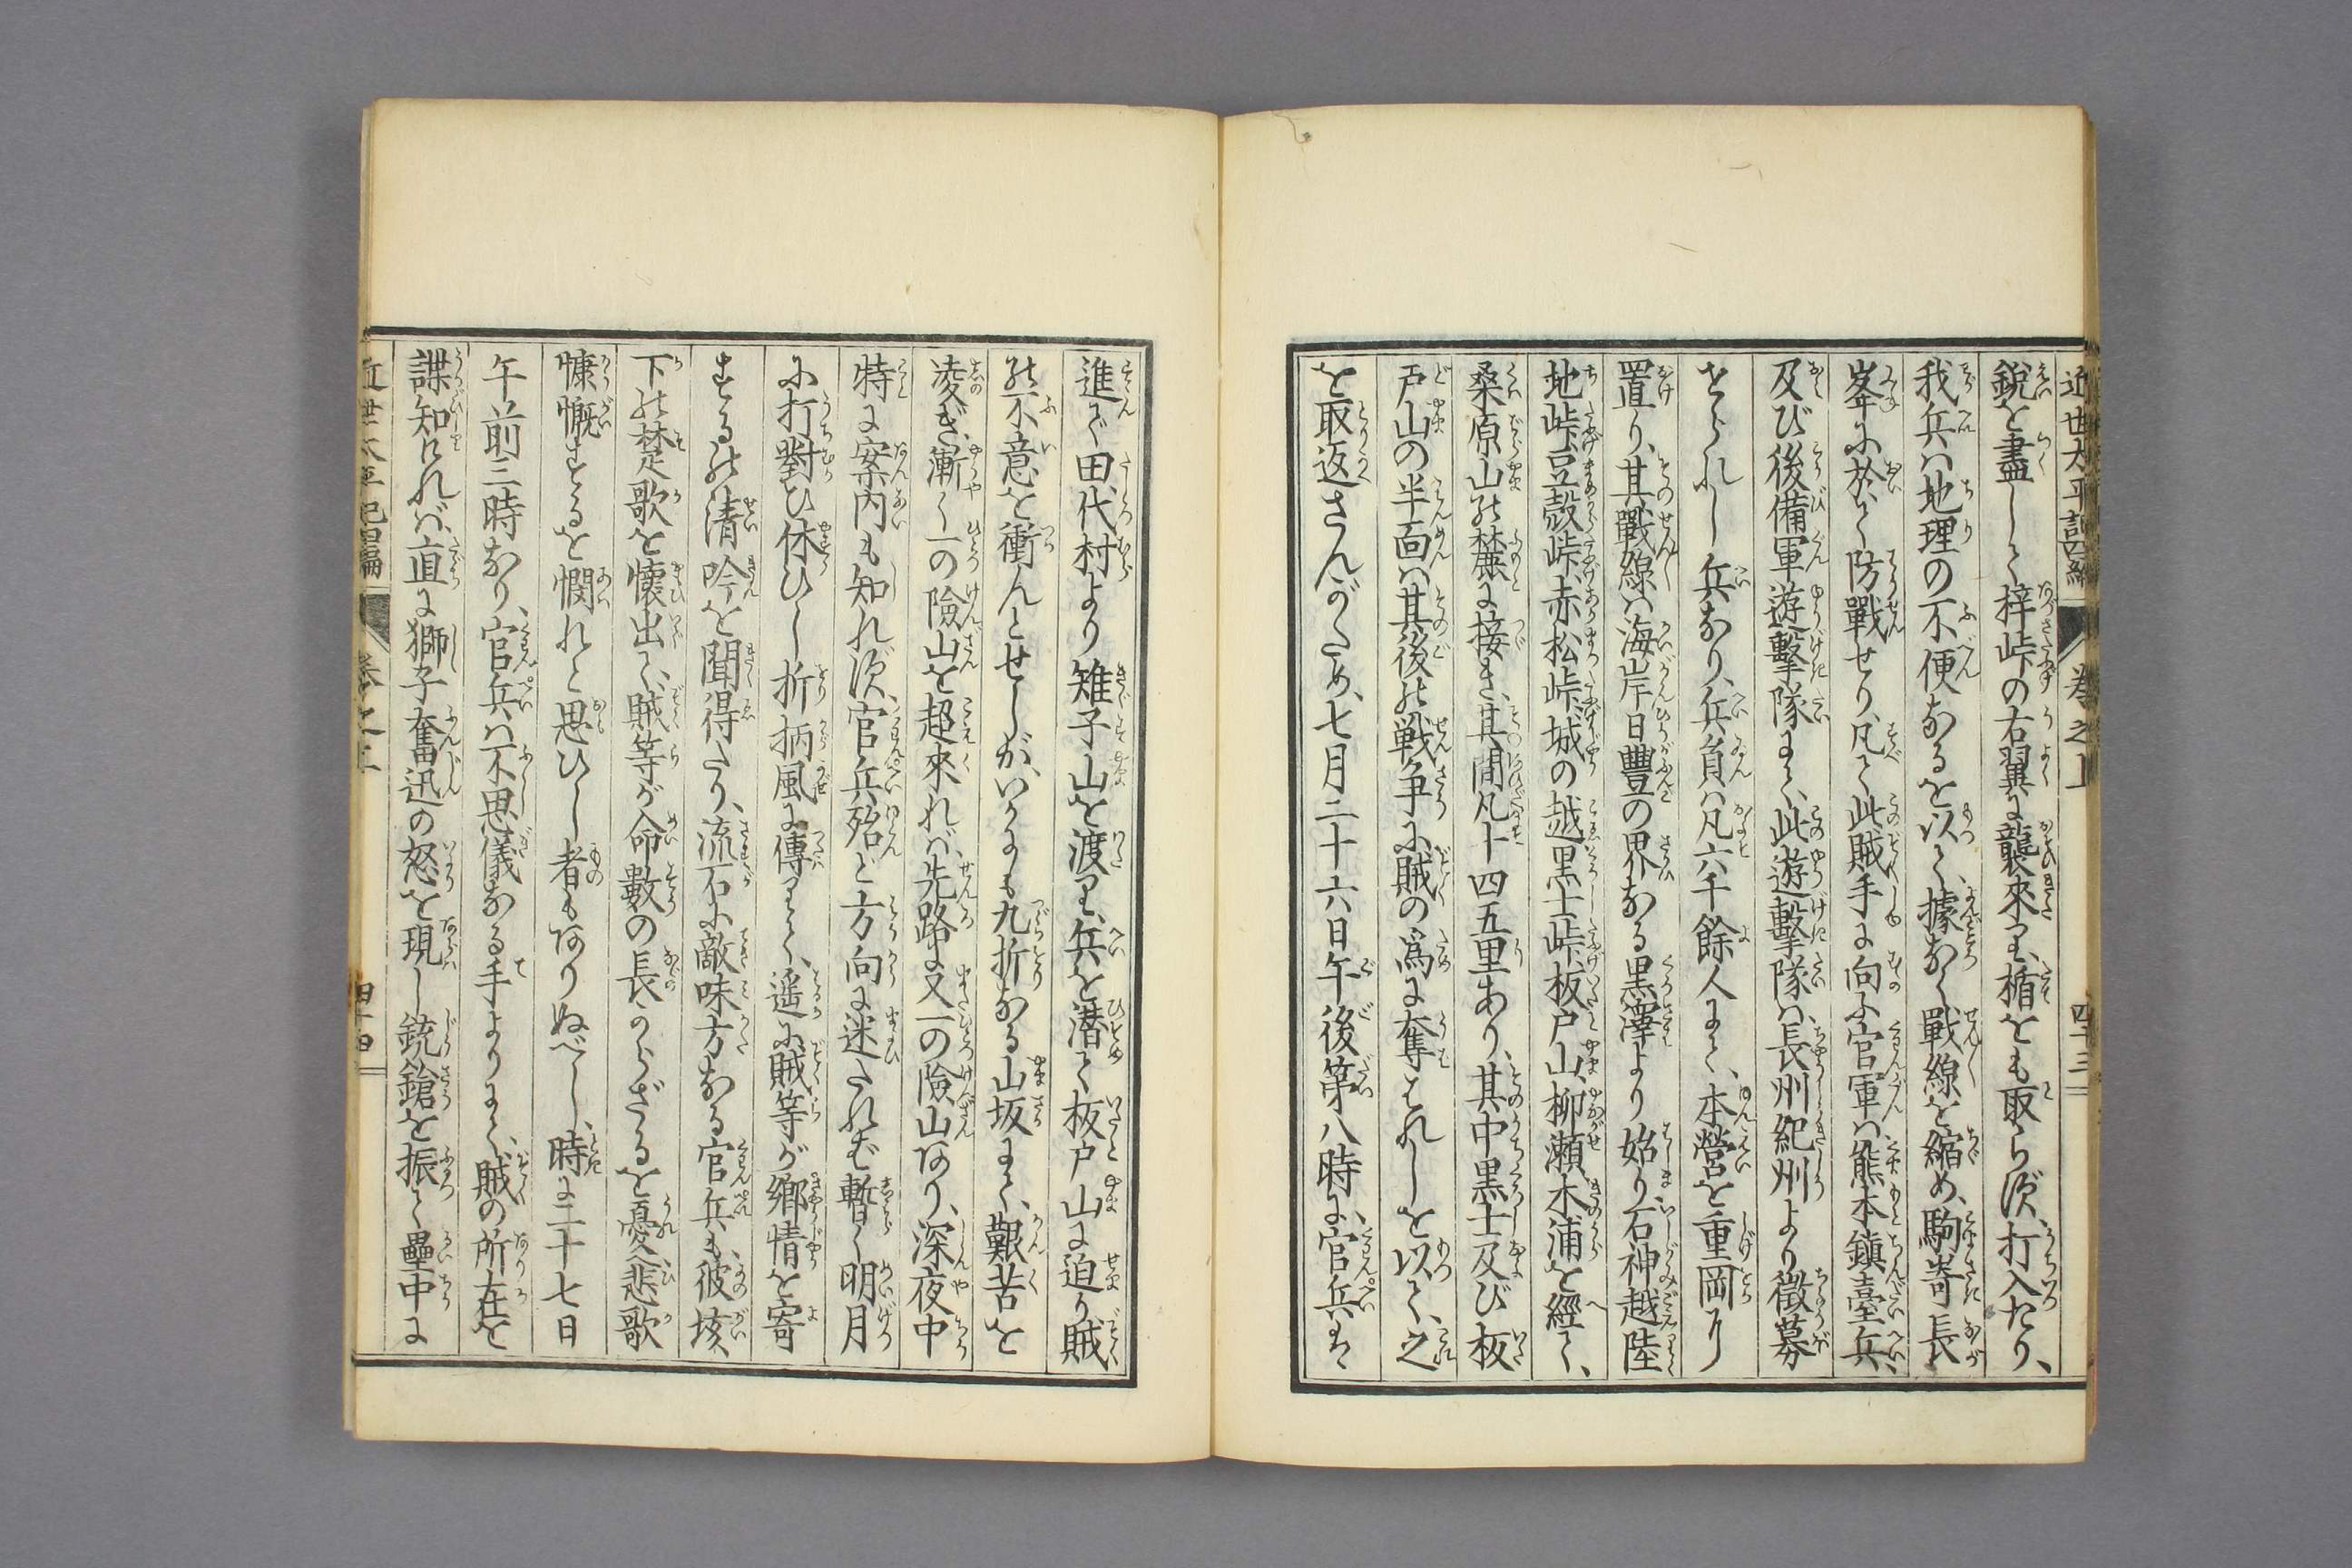 近世太平記四編 卷之上 四十三
鋭を盡して梓峠の右翼に襲來り、楯をも取らず、打入たり、
我兵は地理の不便なるを以て、據なく戰線を縮め、駒嵜長
峯に於て防戰せり、凡て此賊手に向ふ官軍は熊本鎭臺兵、
及び後備軍遊擊隊にて、此遊擊隊は長州紀州より徵募
せられし兵なり、兵員は凡六千餘人にて、本營を重岡に
置り、其戰線は海岸日豐の界なる黑澤より始り、石神越陸
地峠、豆殼峠、赤松峠、城の越黑土峠、板戸山、柳瀨、木浦を經て、
桑原山の麓に接き、其間凡十四五里あり、其中黑土及び板
戸山の半面は其後の戰爭に賊の爲に奪はれしを以て、之
を取返さんがため、七月二十六日午後第八時に、官兵は
進んで田代村より雉子山を渡り、兵を潛て板戸山に迫り賊
の不意を衝んとせしが、いかにも九折なる山坂にて、艱苦を
凌ぎ、漸く一の險山を超來れば、先路に又一の險山あり、深夜中
特に案内も知れず、官兵殆ど方向に迷たれば、暫く明月
に打對ひ休ひし折柄風に傳りて、遥に賊等が鄕情を寄
するの清吟を聞得たり、流石に敵味方なる官兵も、彼垓
下の楚歌を懷出て、賊等が命數の長からざるを憂へ、悲歌
慷慨するを憫れと思ひし者もありぬべし、時に二十七日
午前三時なり、官兵は不思儀なる手よりにて、賊の所在を
諜知ければ、直に獅子奮迅の怒を現し、銃鎗を振て壘中に
近世太平記四編 卷之上 四十四